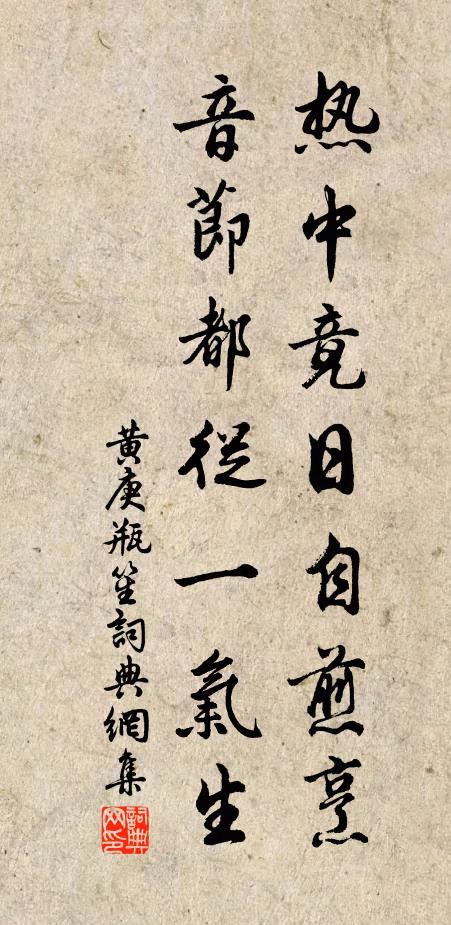 热中竟日自煎烹
音節都從一氣生
黃庚瓶笙詞典網集
詞典网印